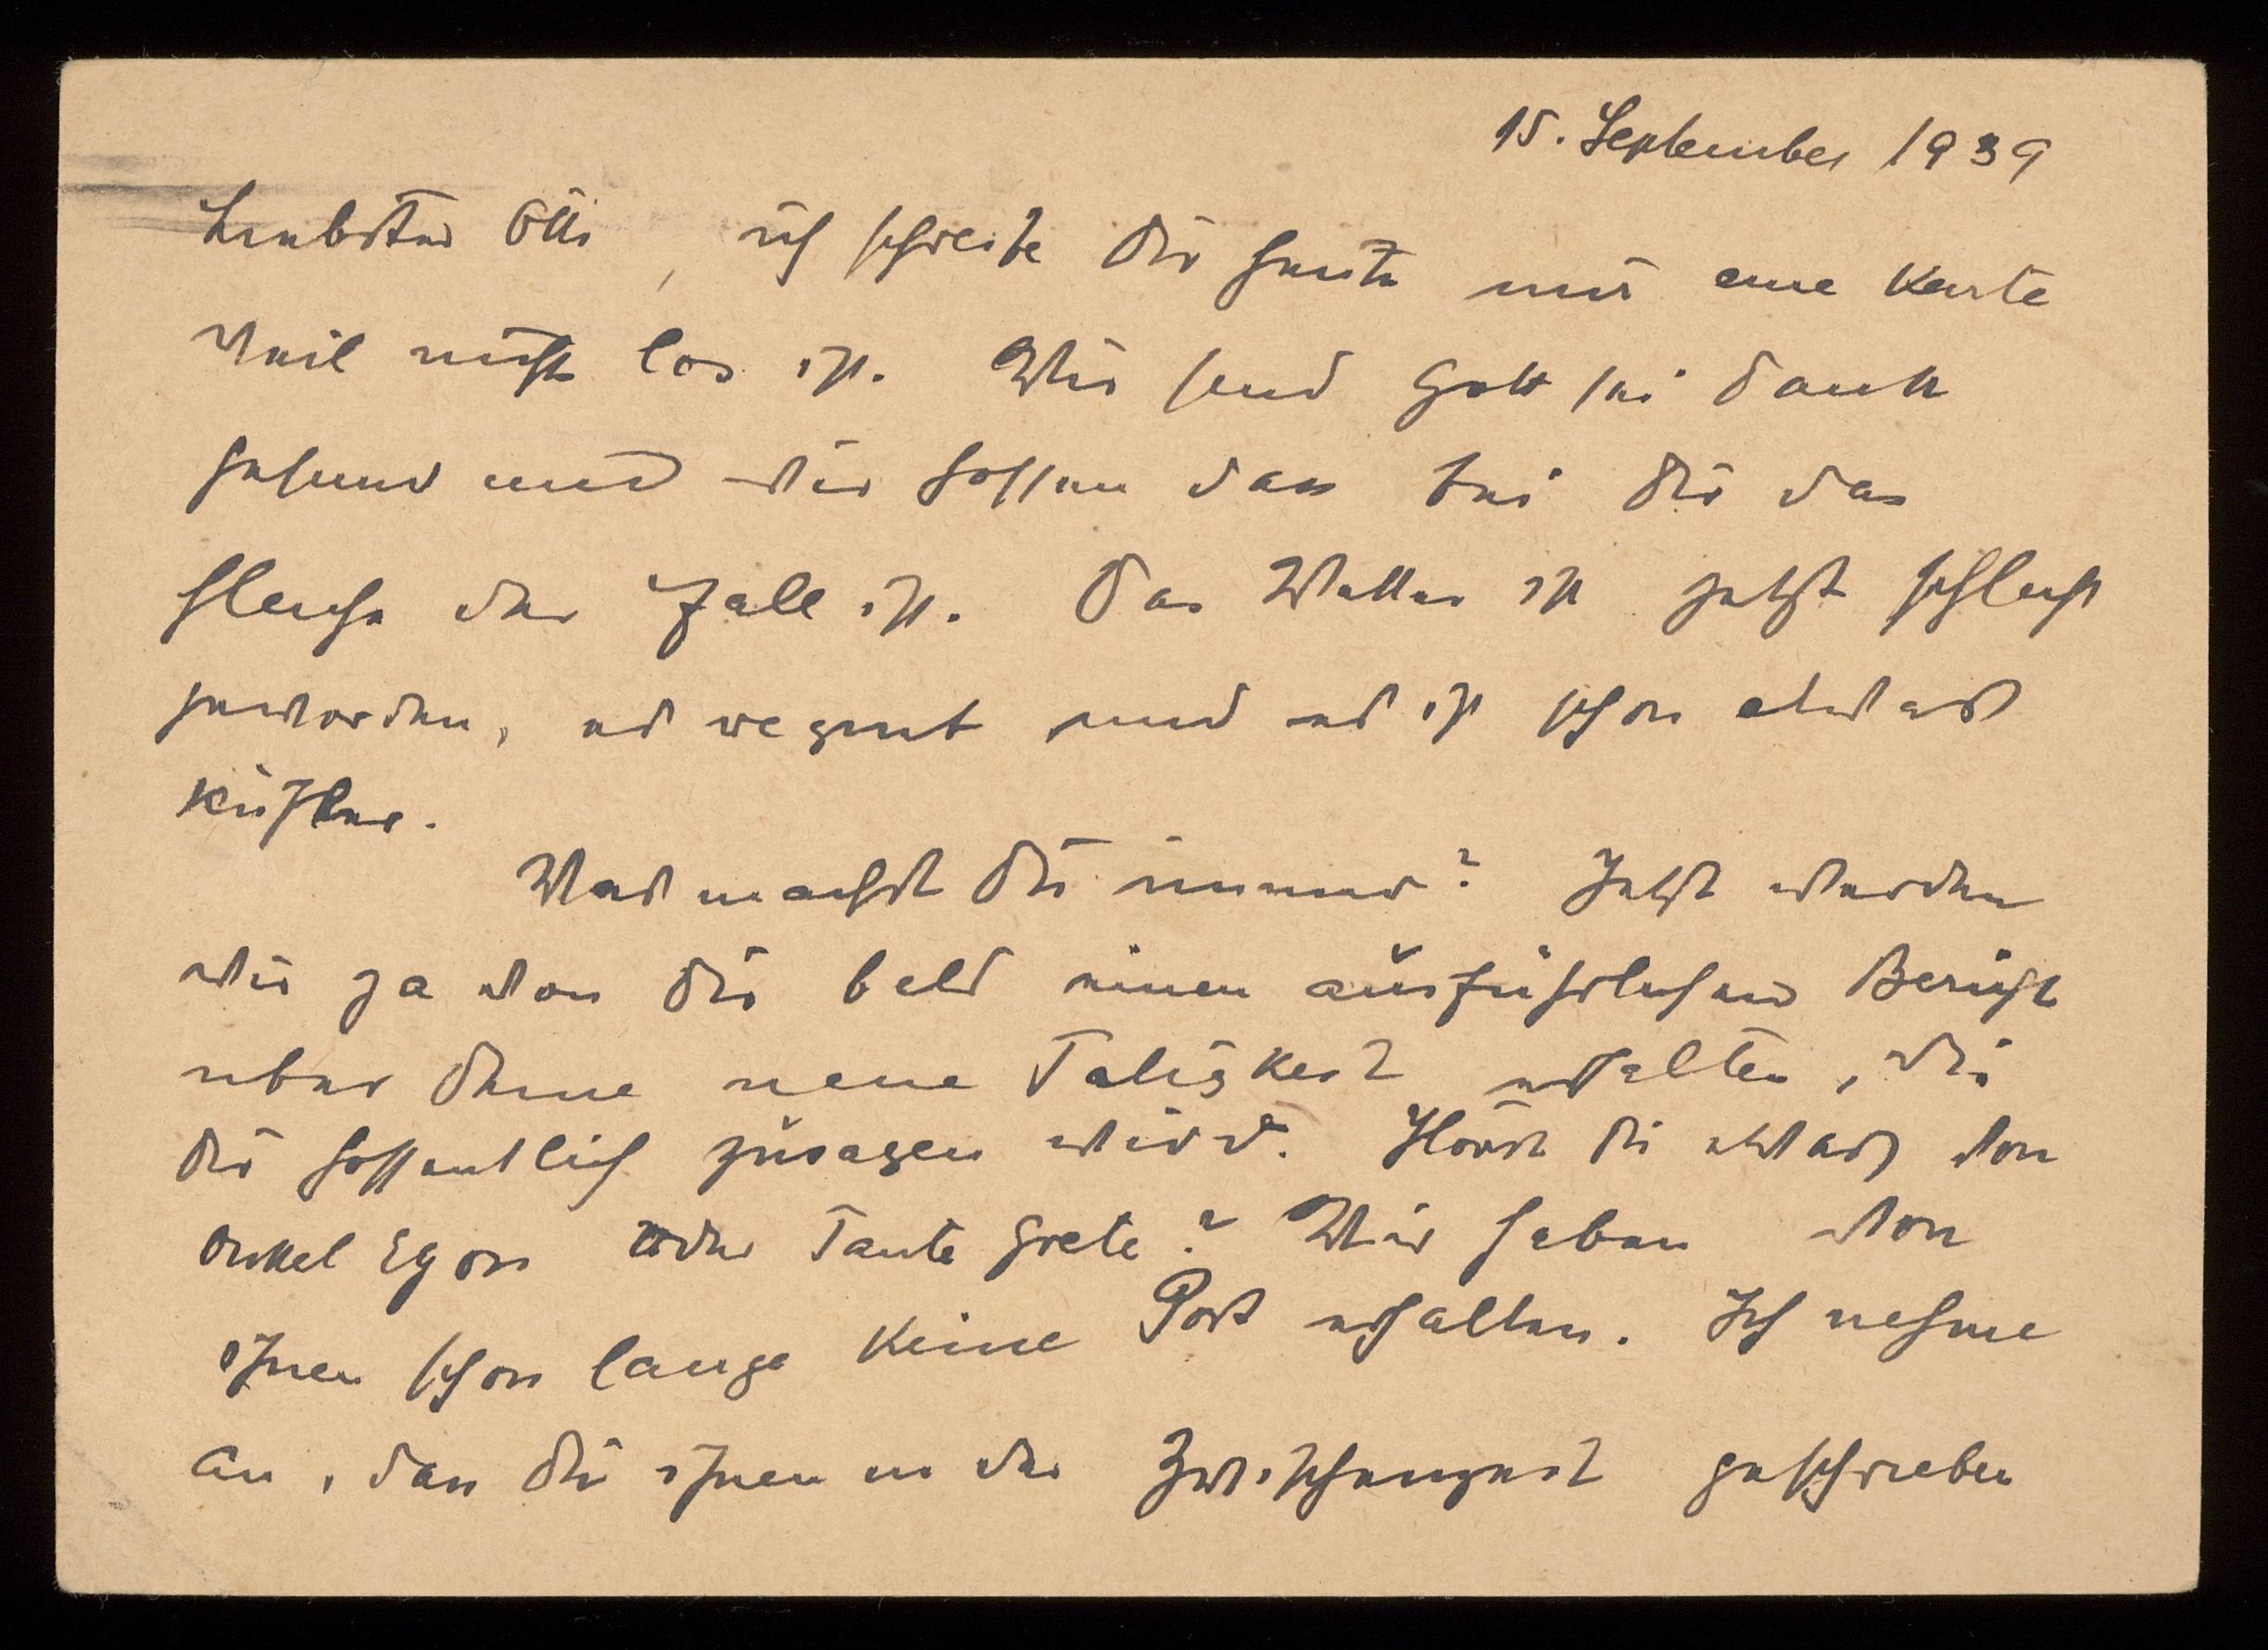 15. September 1939
Liebster Otti, ich schreibe Dir heute nur eine Karte
weil nichts los ist. Wir sind Gott sei Dank
gesund und wir hoffen dass bei Dir das
Gleiche der Fall ist. Das Wetter ist jetzt schlecht
geworden, es regnet und es ist schon etwas
kühler.
Was machst Du immer? Jetzt werden
wir ja von Dir bald einen ausführlichen Bericht
über Deine neue Tätigkeit erhalten, die
Dir hoffentlich zusagen wird. Hörst Du etwas von
Onkel Egon oder Tante Grete? Wir haben von
ihnen schon lange keine Post erhalten. Ich nehme
an, dass Du ihnen in der Zwischenzeit geschrieben